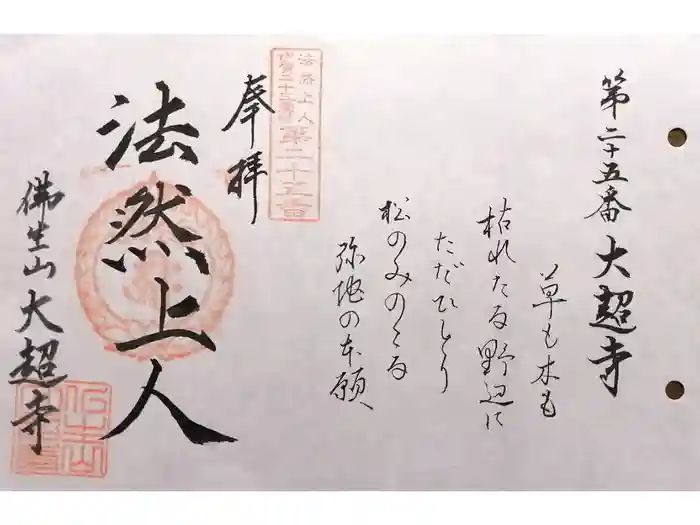 第二十五番 大超寺
草も木も
枯れたる野辺に
ただひとり
松のみのこる
弥陀の本願
法然上人
第二十五番
奉拝
法然上人
佛生山 大超寺